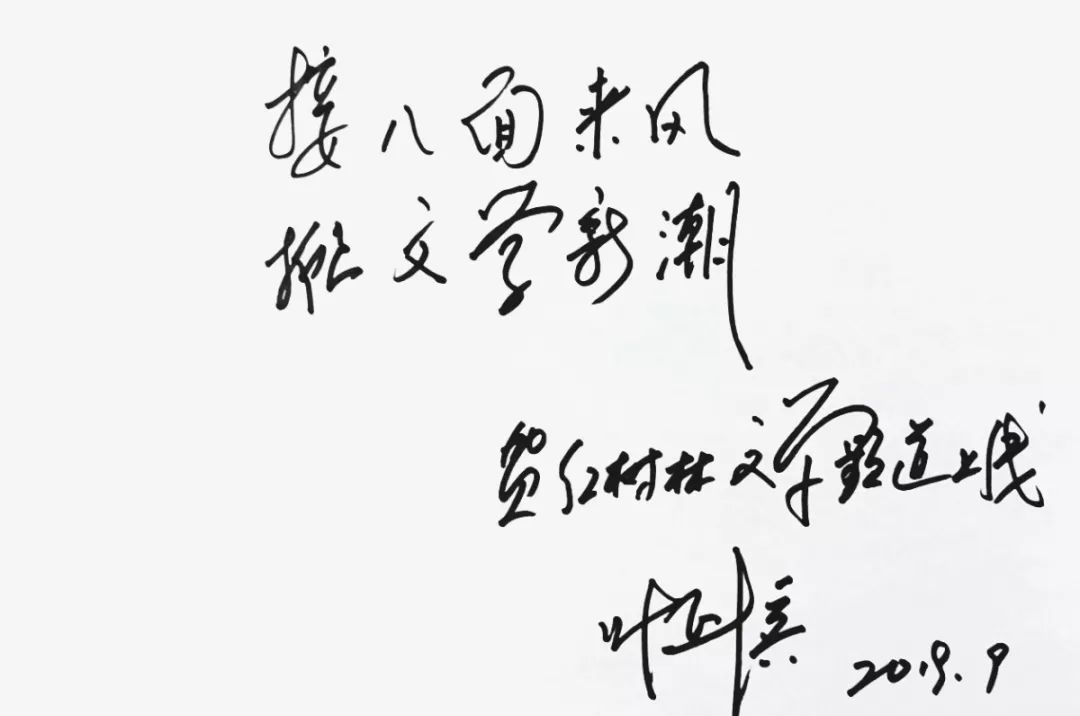 接八面来风
文学新潮
贺红树林文学频道上线
叶延滨 2019.9